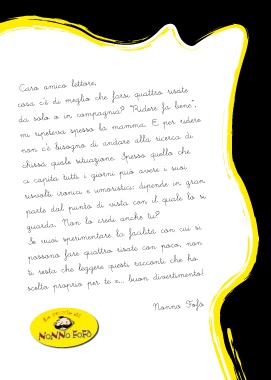 Caro amico lettore,
cosa c'è di meglio che farsi quattro risate
da solo o in compagnia? "Ridere fa bene",
mi ripeteva spesso la mamma. E per ridere
non c'è bisogno di andare alla ricerca di
chissà quale situazione. Spesso quello che
ci capita tutti i giorni può avere i suoi
risvolti ironici e umoristici: dipende in gran
parte dal punto di vista con il quale lo si
guarda. Non lo credi anche tu?
Se vuoi sperimentare la facilità con cui si
possono fare quattro risate con poco, non
ti resta che leggere questi racconti che ho
scelto proprio per te e... buon divertimento!
Nonno Fofo
di
NONNO FOFO